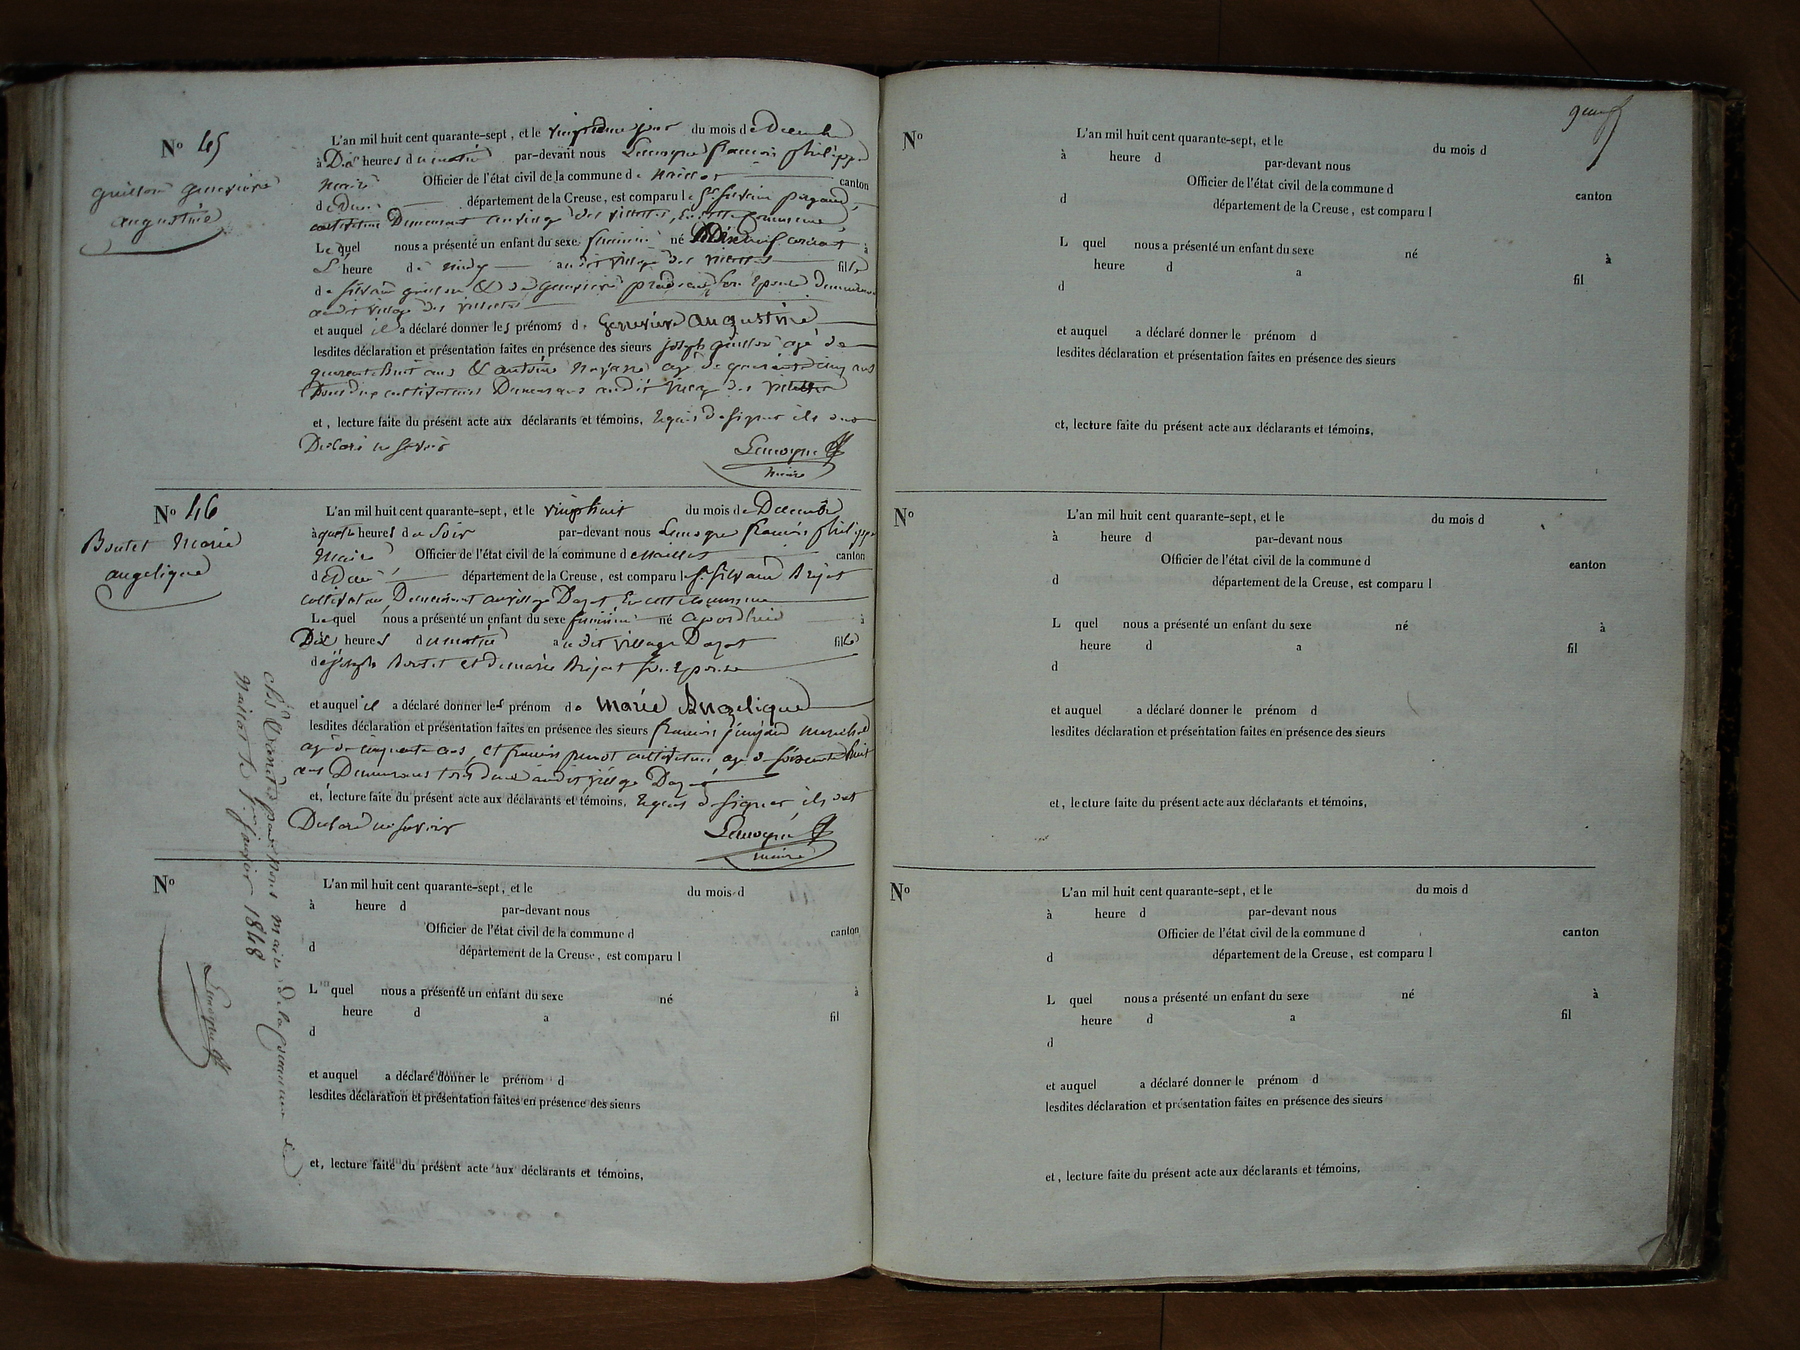 N° 45
guillon genevieve
augustine
L'an mil huit cent quarante-sept, et le du mois de Decembre
à Dix heures du matin par-devant nous Lemoyne francois philippe
maire Officier de l'état civil de la commune de canton
de Dun département de la Creuse, est comparu le Sr silvain
cultivateur Demeurant au village des villettes, En cette Commune
Le quel nous a présenté un enfant du sexe feminin né à
heure de audit village des villettes fille
de silvain guillon & de genevieve son Epouse
audit village des villettes
et auquel il a déclaré donner les prénoms de Genevieve augustine
lesdites déclaration et présentation faites en présence des sieurs joseph guillon agé de
quarante huit ans & antoine agé de quarante cinq ans
tous deux cultivateurs Demeurans audit des villettes
et, lecture faite du présent acte aux déclarants et témoins, Requis de signer ils ont
Declaré ne savoir
Lemoyne
maire
N° 46
Boutet Marie
angelique
L'an mil huit cent quarante-sept, et le vingt huit du mois de Decembre
à quatre heures du Soir par-devant nous Lemoyne francois philippe
Maire Officier de l'état civil de la commune de Maillat canton
de Dun département de la Creuse, est comparu le Sr Silvain Brejot
cultivateur Demeurant au village En cette commune
Le quel nous a présenté un enfant du sexe feminin né à
Dix heures du matin audit village fille
de joseph Boutet et de marie Brejot son Epouse
et auquel il a déclaré donner les prénom de Marie Angelique
lesdites déclaration et présentation faites en présence des sieurs francois
agé de cinquante ans, et francois cultivateur agé de soixante huit
ans Demeurans tous deux audit village
et, lecture faite du présent acte aux déclarants et témoins, Requis de signer ils ont
Declaré ne savoir
Lemoyne
maire
Clos & arreté par nous maire de la commune de
Maillat le janvier 1848
Lemoyne
N°
L'an mil huit cent quarante-sept, et le du mois d
à heure d par-devant nous
Officier de l'état civil de la commune d canton
d département de la Creuse, est comparu l
L quel nous a présenté un enfant du sexe né à
heure d a fil
d
et auquel a déclaré donner le prénom d
lesdites déclaration et présentation faites en présence des sieurs
et, lecture faite du présent acte aux déclarants et témoins,
N°
L'an mil huit cent quarante-sept, et le du mois d
à heure d par-devant nous
Officier de l'état civil de la commune d canton
d département de la Creuse, est comparu l
L quel nous a présenté un enfant du sexe né à
heure d a fil
d
et auquel a déclaré donner le prénom d
lesdites déclaration et présentation faites en présence des sieurs
et, lecture faite du présent acte aux déclarants et témoins,
N°
L'an mil huit cent quarante-sept, et le du mois d
à heure d par-devant nous
Officier de l'état civil de la commune d canton
d département de la Creuse, est comparu l
L quel nous a présenté un enfant du sexe né à
heure d a fil
d
et auquel a déclaré donner le prénom d
lesdites déclaration et présentation faites en présence des sieurs
et, lecture faite du présent acte aux déclarants et témoins,
N°
L'an mil huit cent quarante-sept, et le du mois d
à heure d par-devant nous
Officier de l'état civil de la commune d canton
d département de la Creuse, est comparu l
L quel nous a présenté un enfant du sexe né à
heure d a fil
d
et auquel a déclaré donner le prénom d
lesdites déclaration et présentation faites en présence des sieurs
et, lecture faite du présent acte aux déclarants et témoins,